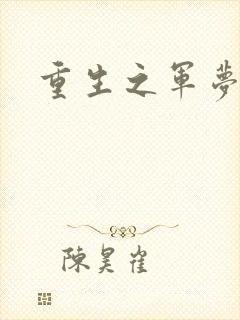 重生之軍夢
陳昊雀